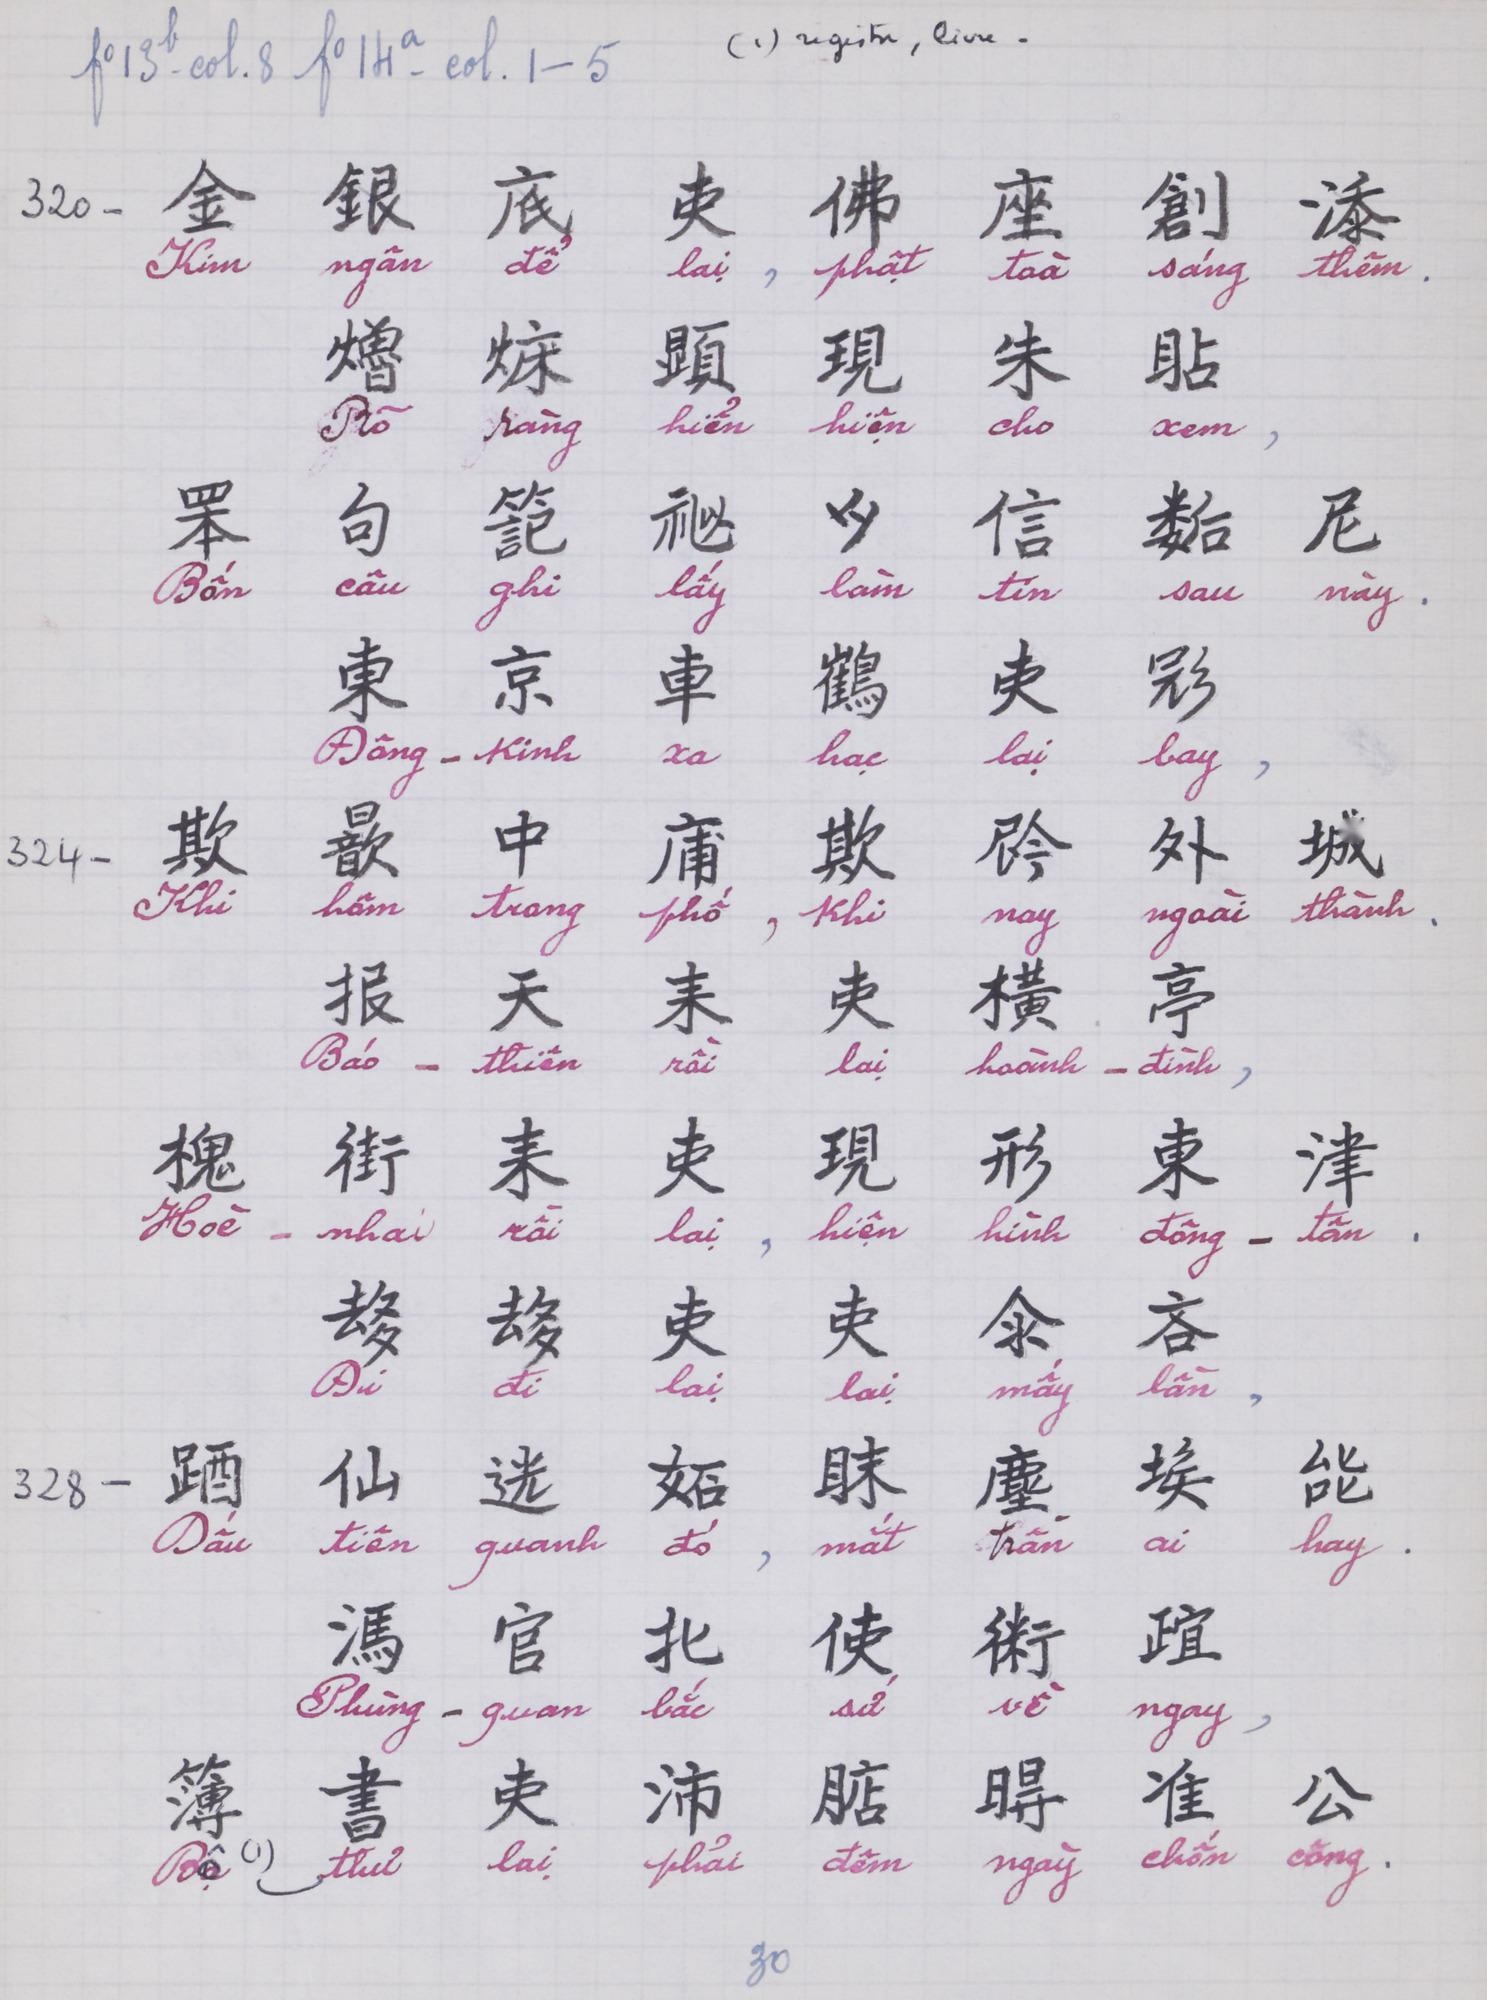 f° 13ᵇ - col. 8 f° 14ᵃ - col. 1 – 5
(1) registre, livre -
320 - 金 銀 底 吏 佛 座 創 添
Kim ngân để lại, phật toà sáng thêm.
𤏧 𤉜 顕 現 朱 貼
Rõ ràng hiển hiện cho xem,
罘 句 𥱬 𥘶 𫜵 信 𡢐 尼
Bốn câu ghi lấy làm tín sau này.
東 京 車 鶴 吏 𢒎
Đông - Kinh xa hạc lại bay,
324 - 欺 歆 中 庯 欺 𫢩 外 城
Khi hôm trong phố, khi nay ngoài thành.
报 天 耒 吏 橫 亭
Báo - thiên rồi lại hoành - đình,
槐 街 耒 吏 現 形 東 津
Hoè - nhai rồi lại, hiện hình đông - tân.
𠫾 𠫾 吏 吏 氽 吝
Đi đi lại lại mấy lần,
328 - 𨠳 仙 迯 妬 眜 塵 埃 能
Dấu tiên quanh đó, mắt trần ai hay.
馮 官 北 使 術 𣦍
Phùng - quan bắc sứ về ngay,
簿 書 吏 沛 𣎀 𣈜 准 公
Bộ (1) thư lại phải đêm ngày chốn công.
30